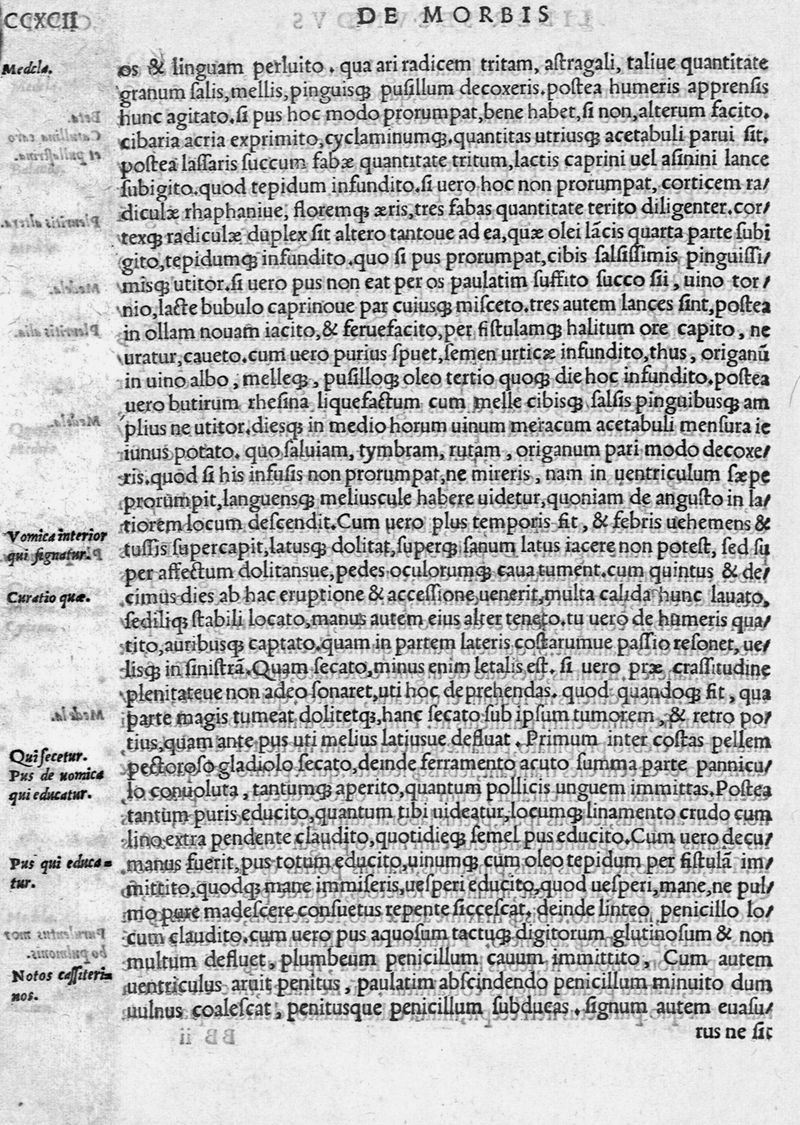 CCXCII
DE MORBIS
Medela.
os & linguam perluito. qua ari radicem tritam, astragali, taliue quantitate
granum salis, mellis, pinguisq; pusillum decoxeris. postea humeris apprensis
hunc agitato. si pus hoc modo prorumpat, bene habet, si non, alterum facito.
cibaria acria exprimito, cyclaminumq;. quantitas utriusq; acetabuli parui sit.
postea lassaris succum fabæ quantitate tritum, lactis caprini uel asinini lance
subigito. quod tepidum infundito. si uero hoc non prorumpat, corticem ra/
diculæ rhaphaniue, floremq; æris, tres fabas quantitate terito diligenter. cor/
texq; radiculæ duplex sit altero tantoue ad ea, quæ olei lācis quarta parte subi
gito, tepidumq; infundito. quo si pus prorumpat, cibis salsissimis pinguissi/
misq; utitor. si uero pus non eat per os paulatim suffito succo sii, uino tor/
nio, lacte bubulo caprinoue par cuiusq; misceto. tres autem lances sint, postea
in ollam nouam iacito, & feruefacito, per fistulamq; halitum ore capito, ne
uratur, caueto. cum uero purius spuet, semen urticæ infundito, thus, origanū
in uino albo, melleq;, pusilloq; oleo tertio quoq; die hoc infundito. postea
uero butirum rhesina liquefactum cum melle cibisq; salsis pinguibusq; am
plius ne utitor. diesq; in medio horum uinum meracum acetabuli mensura ie
iunus potato. quo saluiam, tymbram, rutam, origanum pari modo decoxe/
ris. quod si his infusis non prorumpat, ne mireris, nam in uentriculum sæpe
prorumpit, languensq; meliuscule habere uidetur, quoniam de angusto in la/
tiorem locum descendit. Cum uero plus temporis fit, & febris uehemens &
Vomica interior
qui signatur.
tussis supercapit, latusq; dolitat, superq; sanum latus iacere non potest, sed su
per affectum dolitansue, pedes oculorumq; caua tument. cum quintus & de/
Curatio quæ.
cimus dies ab hac eruptione & accessione uenerit, multa calida hunc lauato,
sediliq; stabili locato, manus autem eius alter teneto. tu uero de humeris qua/
tito, auribusq; captato. quam in partem lateris costarumue passio resonet, ue/
lisq; in sinistrā. Quam secato, minus enim letalis est. si uero præ crassitudine
plenitateue non adeo sonaret, uti hoc deprehendas. quod quandoq; fit, qua
parte magis tumeat dolitetq;, hanc secato sub ipsum tumorem, & retro po/
tius, quam ante pus uti melius latiusue defluat. Primum inter costas pellem
Qui secetur.
Pus de uomica
qui educatur.
pectoroso gladiolo secato, deinde ferramento acuto summa parte pannicu/
lo conuoluta, tantumq; aperito, quantum pollicis unguem immittas. Postea
tantum puris educito, quantum tibi uideatur, locumq; linamento crudo cum
lino extra pendente claudito, quotidieq; semel pus educito. Cum uero decu/
Pus qui educa=
tur.
manus fuerit, pus totum educito, uinumq; cum oleo tepidum per fistulā im/
mittito, quodq; mane immiseris, uesperi educito, quod uesperi, mane, ne pul/
mo pure madescere consuetus repente siccescat. deinde linteo penicillo lo/
cum claudito. cum uero pus aquosum tactuq; digitorum glutinosum & non
multum defluet, plumbeum penicillum cauum immittito, Cum autem
Notos cassiteri=
nos.
uentriculus aruit penitus, paulatim abscindendo penicillum minuito dum
uulnus coalescat, penitusque penicillum subducas. signum autem euasu/
rus ne sit